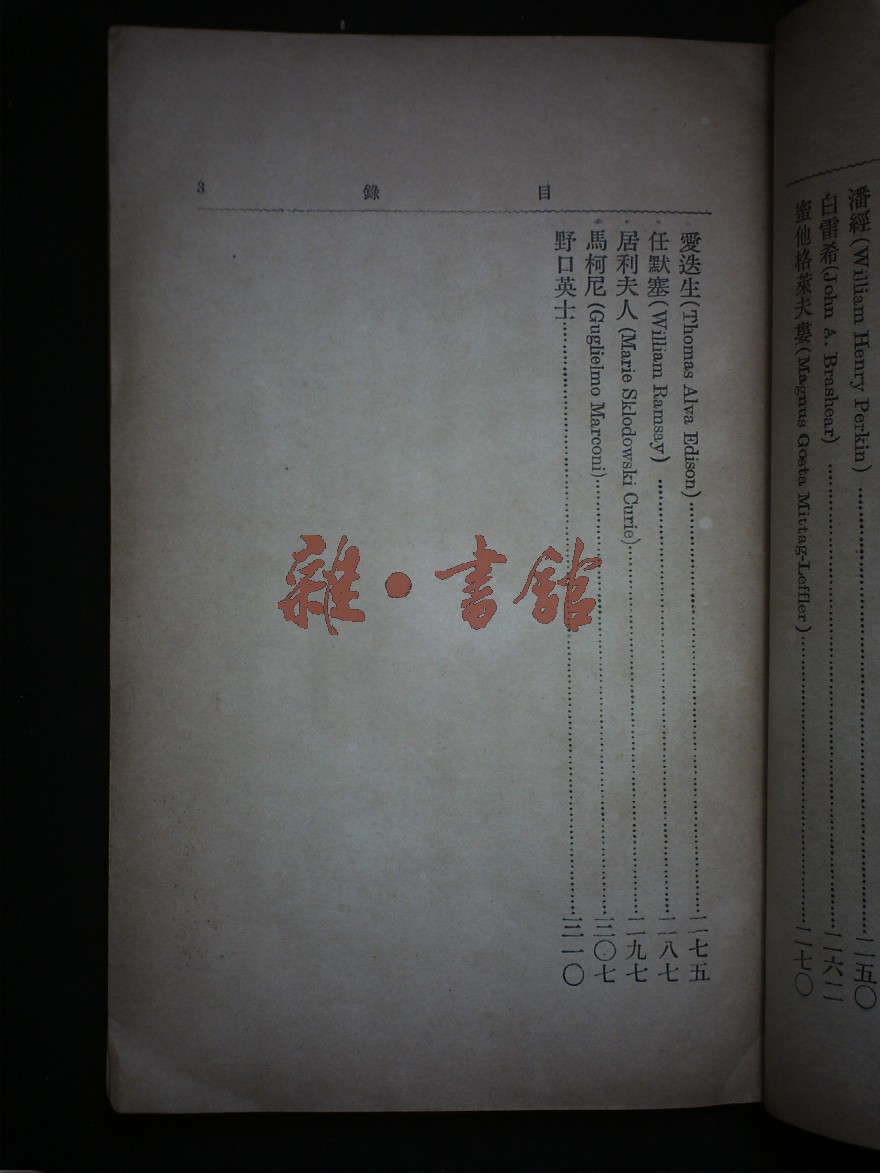 潘經(William Henry Perkin)……二五〇
白雷希(John A. Brashear)……二六二
蜜他格萊夫婁(Magnus Gosta Mittag-Leffler)……二七〇
目錄 3
愛迭生(Thomas Alva Edison)……二七五
任默塞(William Ramsay)……二八七
居利夫人(Marie Sklodowski Curie)……二九七
馬柯尼(Guglielmo Marconi)……三〇七
野口英士……三一〇
雜·書館